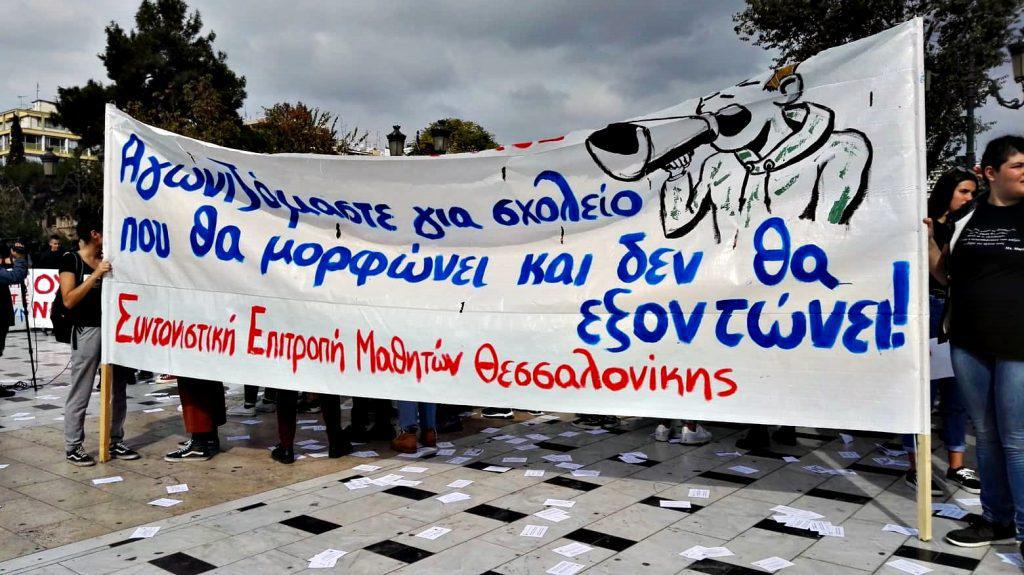 Αγωνιζόμαστε για σχολείο
που θα μορφώνει και δεν θα
εξοντώνει!
Συντονιστική Επιτροπή Μαθητών Θεσσαλονίκης